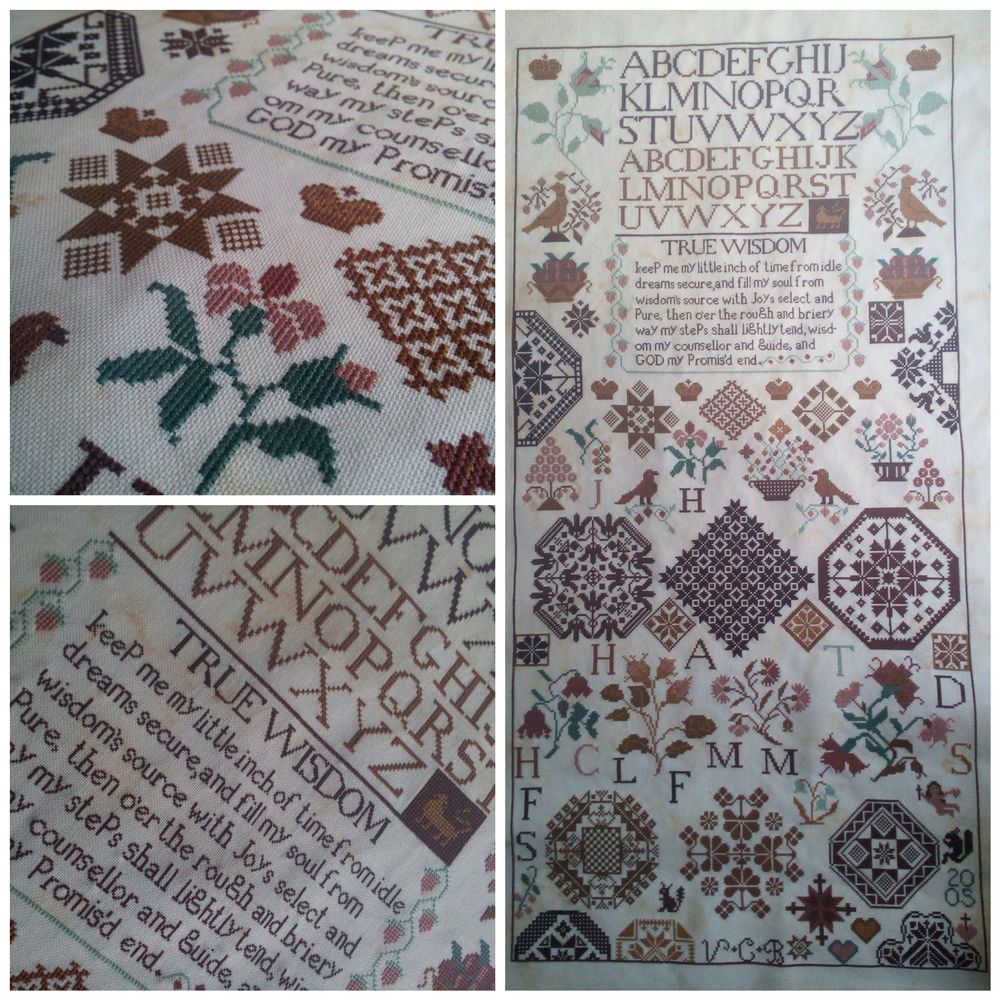 TRUE
keeP me my
dreams
wisdom's source
Pure, then o'er
way my stePs
om my counsellor
GOD my Promis'd
CDEFGHI
LMNOPQRST
UVWXYZ
TRUE WISDOM
keeP me my little inch of time from idle
dreams secure, and fill my soul from
wisdom's source with Joy's select and
Pure, then o'er the rough and briery
my stePs shall lightly tend, wis
counsellor and Guide, and
my Promis'd end.
ABCDEFGHIJ
KLMNOPQR
STUVWXYZ
ABCDEFGHIJK
LMNOPQRST
UVWXYZ
TRUE WISDOM
keeP me my little inch of time from idle
dreams secure, and fill my soul from
wisdom's source with Joy's select and
Pure, then o'er the rough and briery
way my stePs shall lightly tend, wisd-
om my counsellor and Guide, and
GOD my Promis'd end.
J H
H A T D
H C L F M M S
F
S
2005
V+C+B